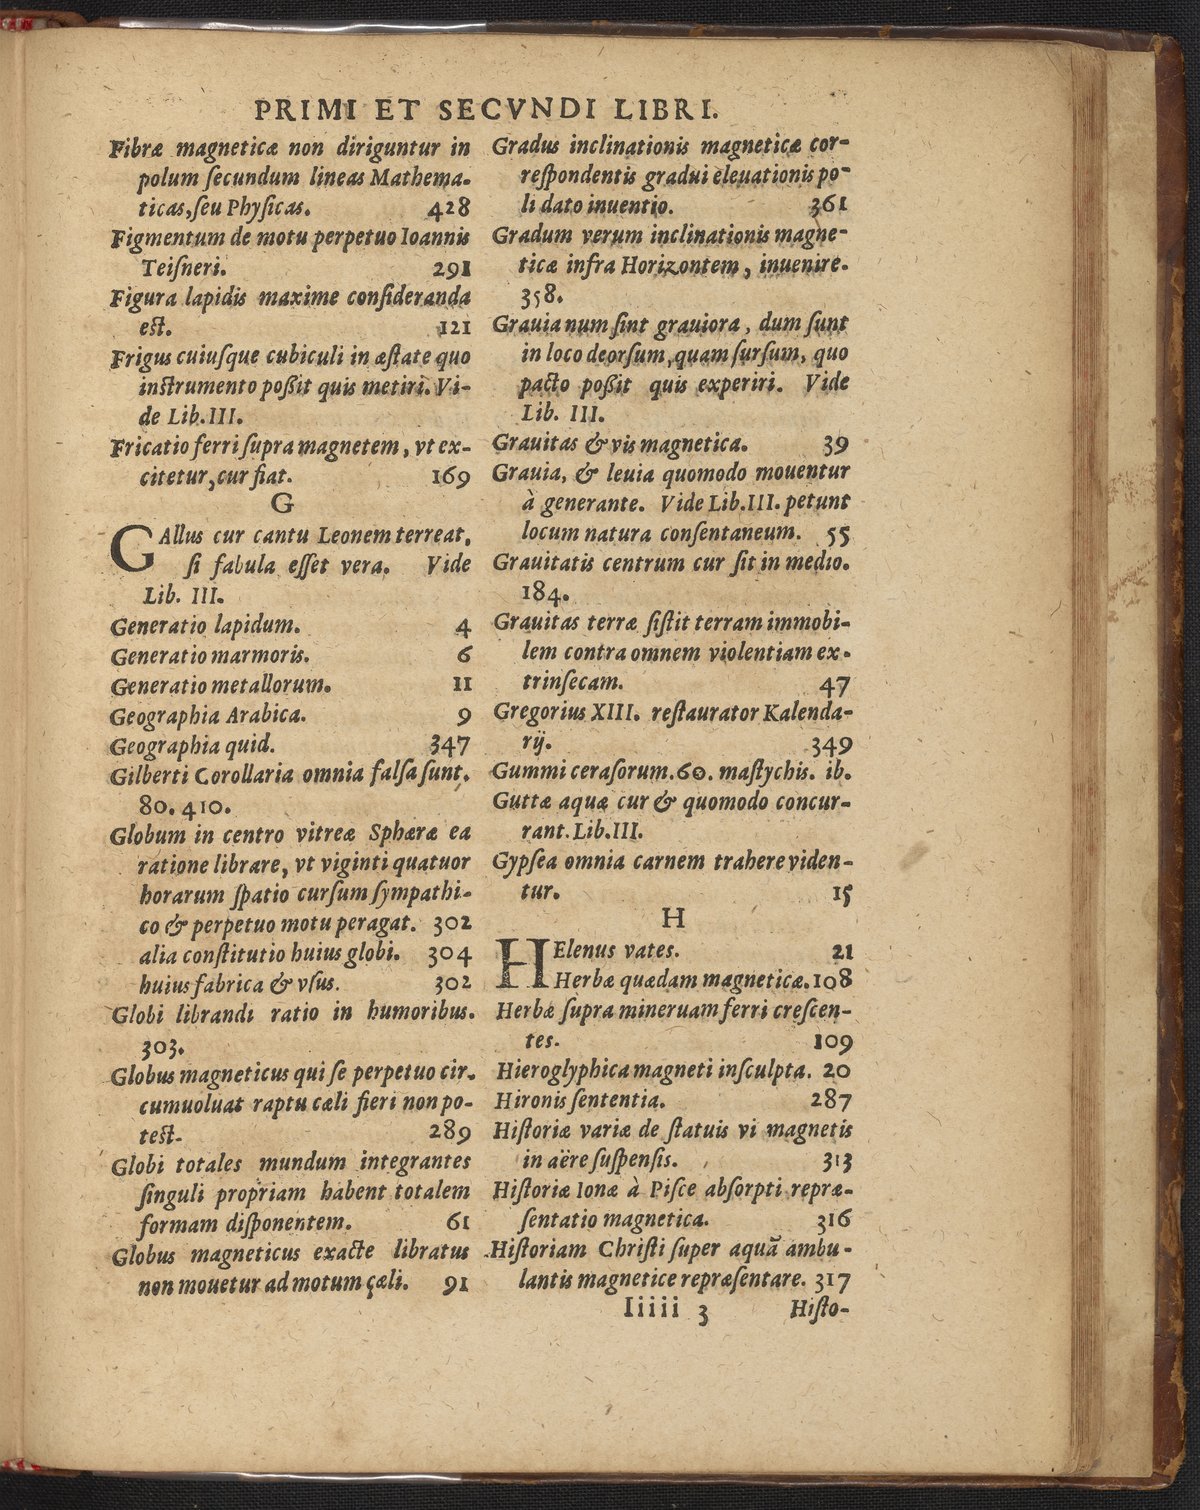 PRIMI ET SECVNDI LIBRI.
Fibræ magneticæ non diriguntur in
polum ſecundum lineas Mathema-
ticas, ſeu Phyſicas. 428
Figmentum de motu perpetuo Ioannis
Teiſneri. 291
Figura lapidis maxime conſideranda
est. 121
Frigus cuiuſque cubiculi in æſtate quo
inſtrumento poßit quis metiri. Vi-
de Lib. III.
Fricatio ferri ſupra magnetem, vt ex-
citetur, cur fiat. 169
G
GAllus cur cantu Leonem terreat,
ſi fabula eſſet vera. Vide
Lib. III.
Generatio lapidum. 4
Generatio marmoris. 6
Generatio metallorum. 11
Geographia Arabica. 9
Geographia quid. 347
Gilberti Corollaria omnia falſa ſunt.
80. 410.
Globum in centro vitreæ Sphæræ ea
ratione librare, vt viginti quatuor
horarum ſpatio curſum ſympathi-
co & perpetuo motu peragat. 302
alia conſtitutio huius globi. 304
huius fabrica & vſus. 302
Globi librandi ratio in humoribus.
303.
Globus magneticus qui ſe perpetuo cir-
cumuoluat raptu cæli fieri non po-
test. 289
Globi totales mundum integrantes
ſinguli propriam habent totalem
formam diſponentem. 61
Globus magneticus exacte libratus
non mouetur ad motum çæli. 91
Gradus inclinationis magneticæ cor-
reſpondentis gradui eleuationis po-
li dato inuentio. 361
Gradum verum inclinationis magne-
ticæ infra Horizontem, inuenire.
358.
Grauia num ſint grauiora, dum ſunt
in loco deorſum, quam ſurſum, quo
pacto poßit quis experiri. Vide
Lib. III.
Grauitas & vis magnetica. 39
Grauia, & leuia quomodo mouentur
à generante. Vide Lib. III. petunt
locum natura conſentaneum. 55
Grauitatis centrum cur ſit in medio.
184.
Grauitas terræ ſiſtit terram immobi-
lem contra omnem violentiam ex-
trinſecam. 47
Gregorius XIII. reſtaurator Kalenda-
rij. 349
Gummi ceraſorum. 60. maſtychis. ib.
Guttæ aquæ cur & quomodo concur-
rant. Lib. III.
Gypſea omnia carnem trahere viden-
tur. 15
H
HElenus vates. 21
Herbæ quædam magneticæ. 108
Herbæ ſupra mineruam ferri creſcen-
tes. 109
Hieroglyphica magneti inſculpta. 20
Hironis ſententia. 287
Hiſtoriæ variæ de ſtatuis vi magnetis
in aëre ſuſpenſis. 313
Hiſtoriæ Ionæ à Piſce abſorpti repræ-
ſentatio magnetica. 316
Hiſtoriam Chriſti ſuper aquã ambu-
lantis magnetice repræſentare. 317
Iiiii 3 Hiſto-